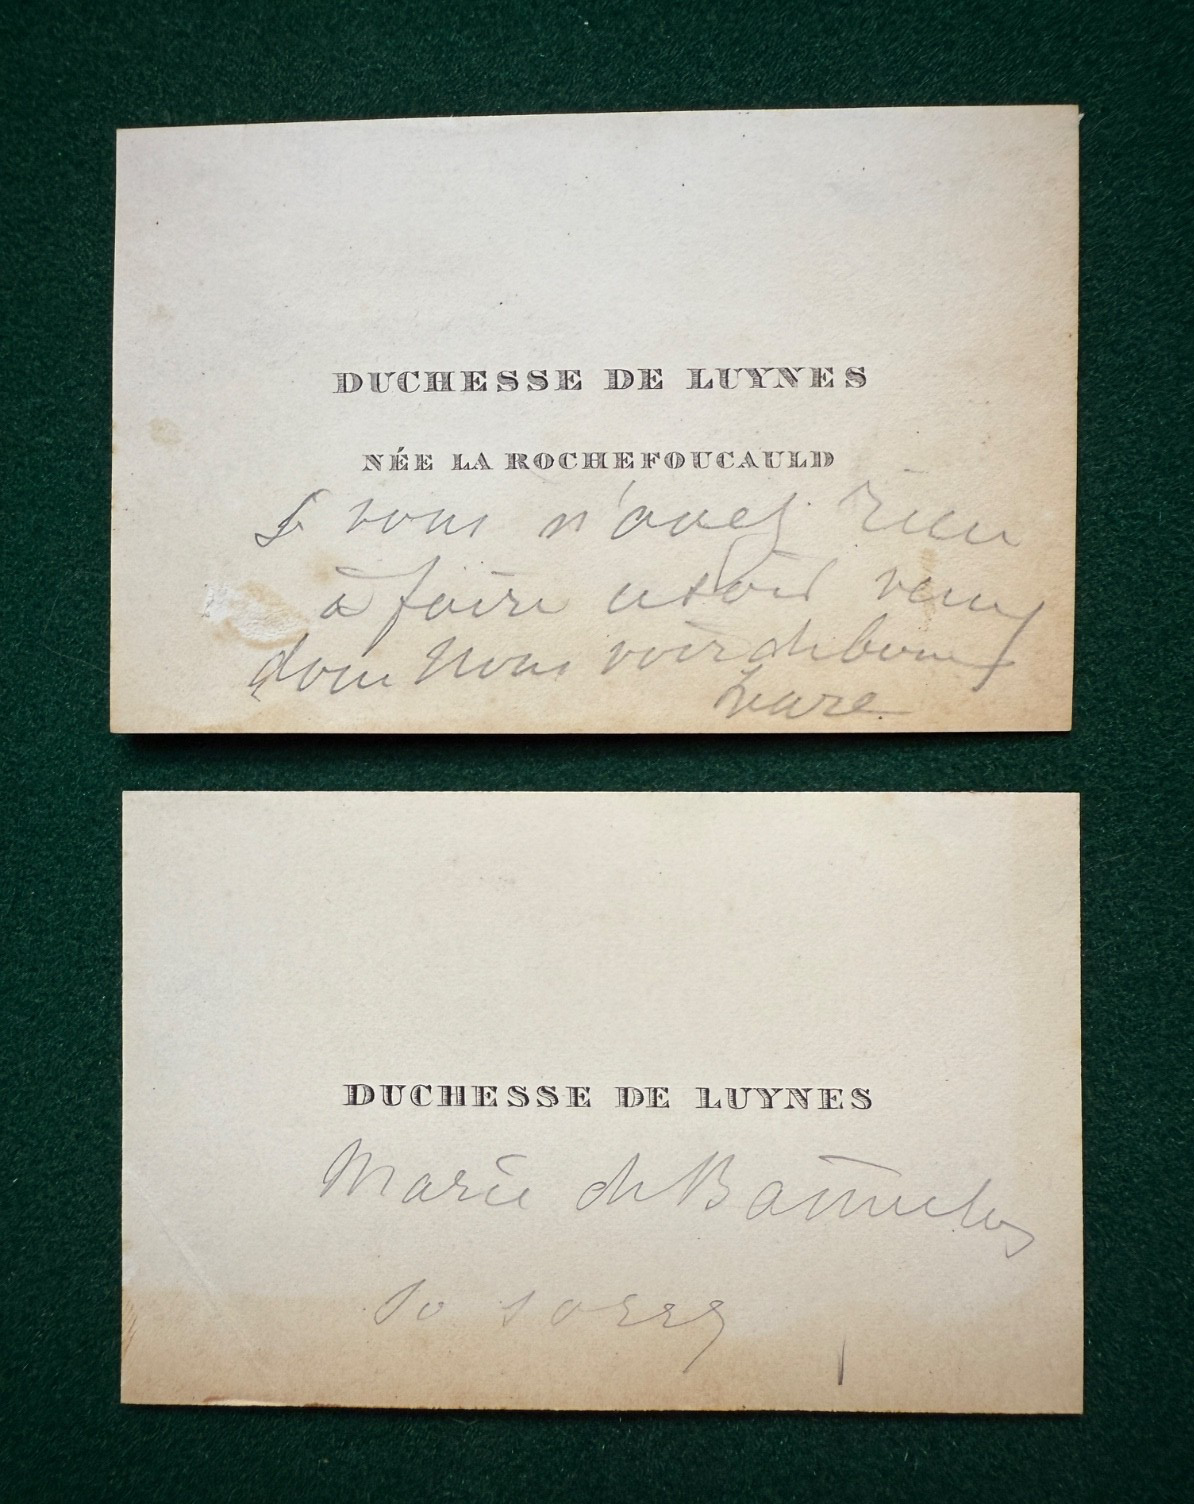 DUCHESSE DE LUYNES
NÉE LA ROCHEFOUCAULD
Si vous n'avez rien
à faire ce soir venez
donc nous voir de bonne
heure
DUCHESSE DE LUYNES
Marie de
So sorry